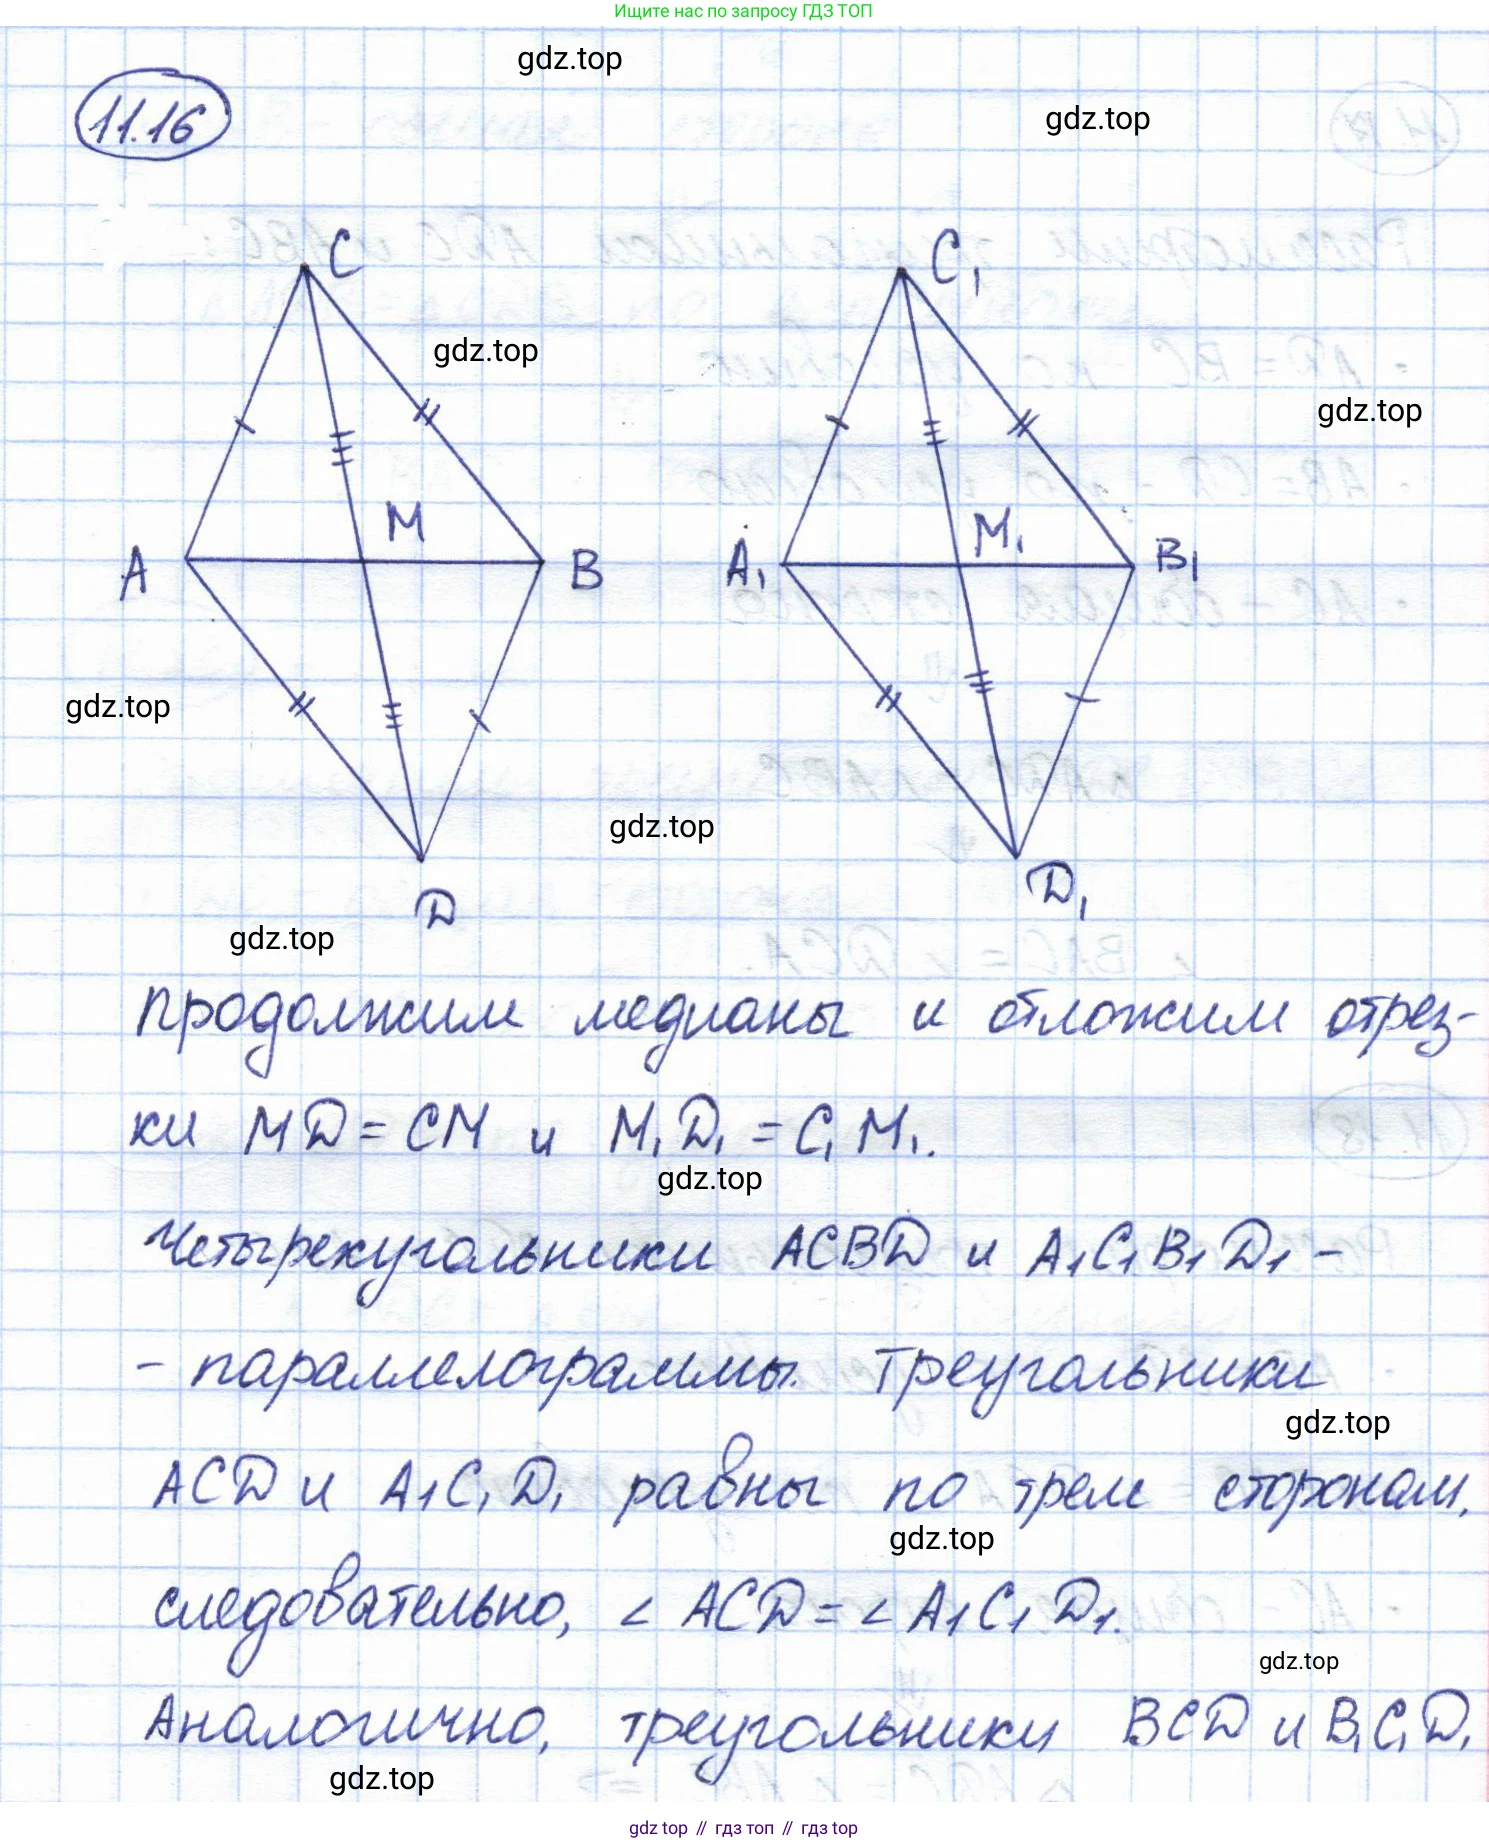 Ищите нас по запросу ГДЗ ТОП
gdz.top
11.16
gdz.top
C
C₁
gdz.top
gdz.top
M
M₁
A
B
A₁
B₁
gdz.top
gdz.top
D
D₁
gdz.top
продолжим медианы и отложим отрез-
ки MD = CM и M₁D₁ = C₁M₁.
gdz.top
Четырехугольники ACBD и A₁C₁B₁D₁ –
– параллелограммы. Треугольники
gdz.top
ACD и A₁C₁D₁ равны по трем сторонам,
gdz.top
следовательно, ∠ ACD = ∠ A₁C₁D₁.
gdz.top
Аналогично, треугольники BCD и B₁C₁D₁
gdz.top
gdz top // гдз топ // гдз top